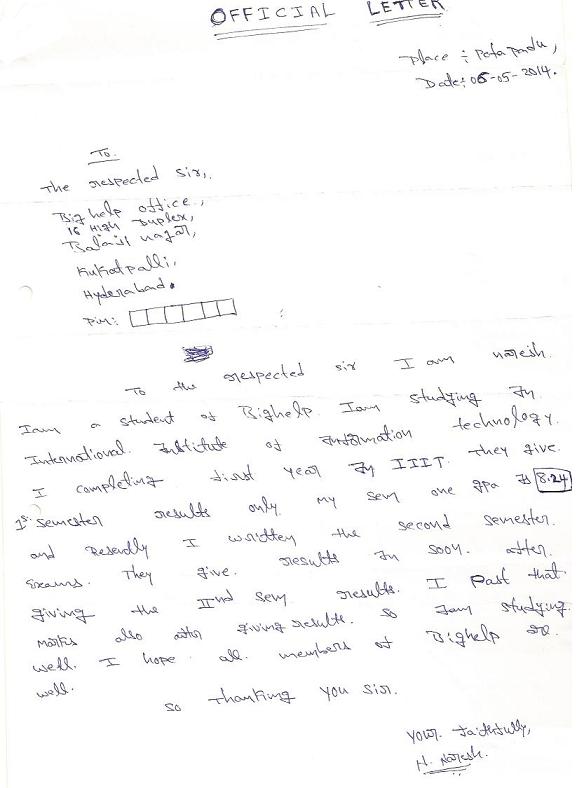 OFFICIAL LETTER
Place : Potapadu,
Date: 06-05-2014.
To.
The respected sir,
Big help office,
16 High Duplex,
Balaji nagar,
Kukatpalli,
Hyderabad.
Pin:
To the respected sir I am naresh.
Iam a student of Bighelp. Iam studying In
International Institute of Information technology.
I completing first year In IIIT. They give.
1st semester results only. my sem one gpa is 8.24
and Resendly I written the second semester.
Exams. They give. results In soon. after.
giving the IInd sem results. I Past that
marks also after giving results. So Iam studying
well. I hope. all. members of Bighelp are
well.
So Thanking you sir.
Your. faithfully,
H. Naresh.